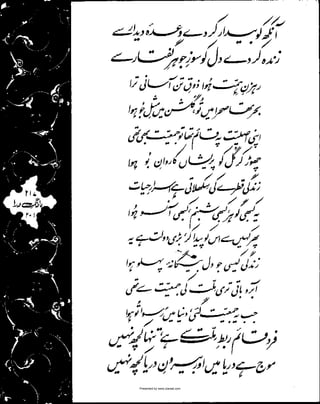 آنکھ کو بیدار کر دے وعدۂ دیدار سے
زندہ کر دے دل کو سوزِ جوہرِ گفتار سے
رہزنِ ہمت ہوا ذوقِ تن آسانی ترا
بحر تھا صحرا میں تو، گلشن میں مثلِ جو ہوا
اپنی اصلیت پہ قائم تھا تو جمعیت بھی تھی
چھوڑ کر گل کو پریشاں کاروانِ بو ہوا
زندگی قطرے کی سکھلاتی ہے اسرارِ حیات
یہ کبھی گوہر، کبھی شبنم، کبھی آنسو ہوا
پھر کہیں سے اس کو پیدا کر، بڑی دولت ہے یہ
زندگی کیسی جو دل بیگانۂ پہلو ہوا
آبرو باقی تری ملت کی جمعیت سے تھی
جب یہ جمعیت گئی، دنیا میں رسوا تو ہوا
فرد قائم ربطِ ملت سے ہے، تنہا کچھ نہیں
موج ہے دریا میں اور بیرونِ دریا کچھ نہیں
بانگِ درا
Presented by www.ziaraat.com